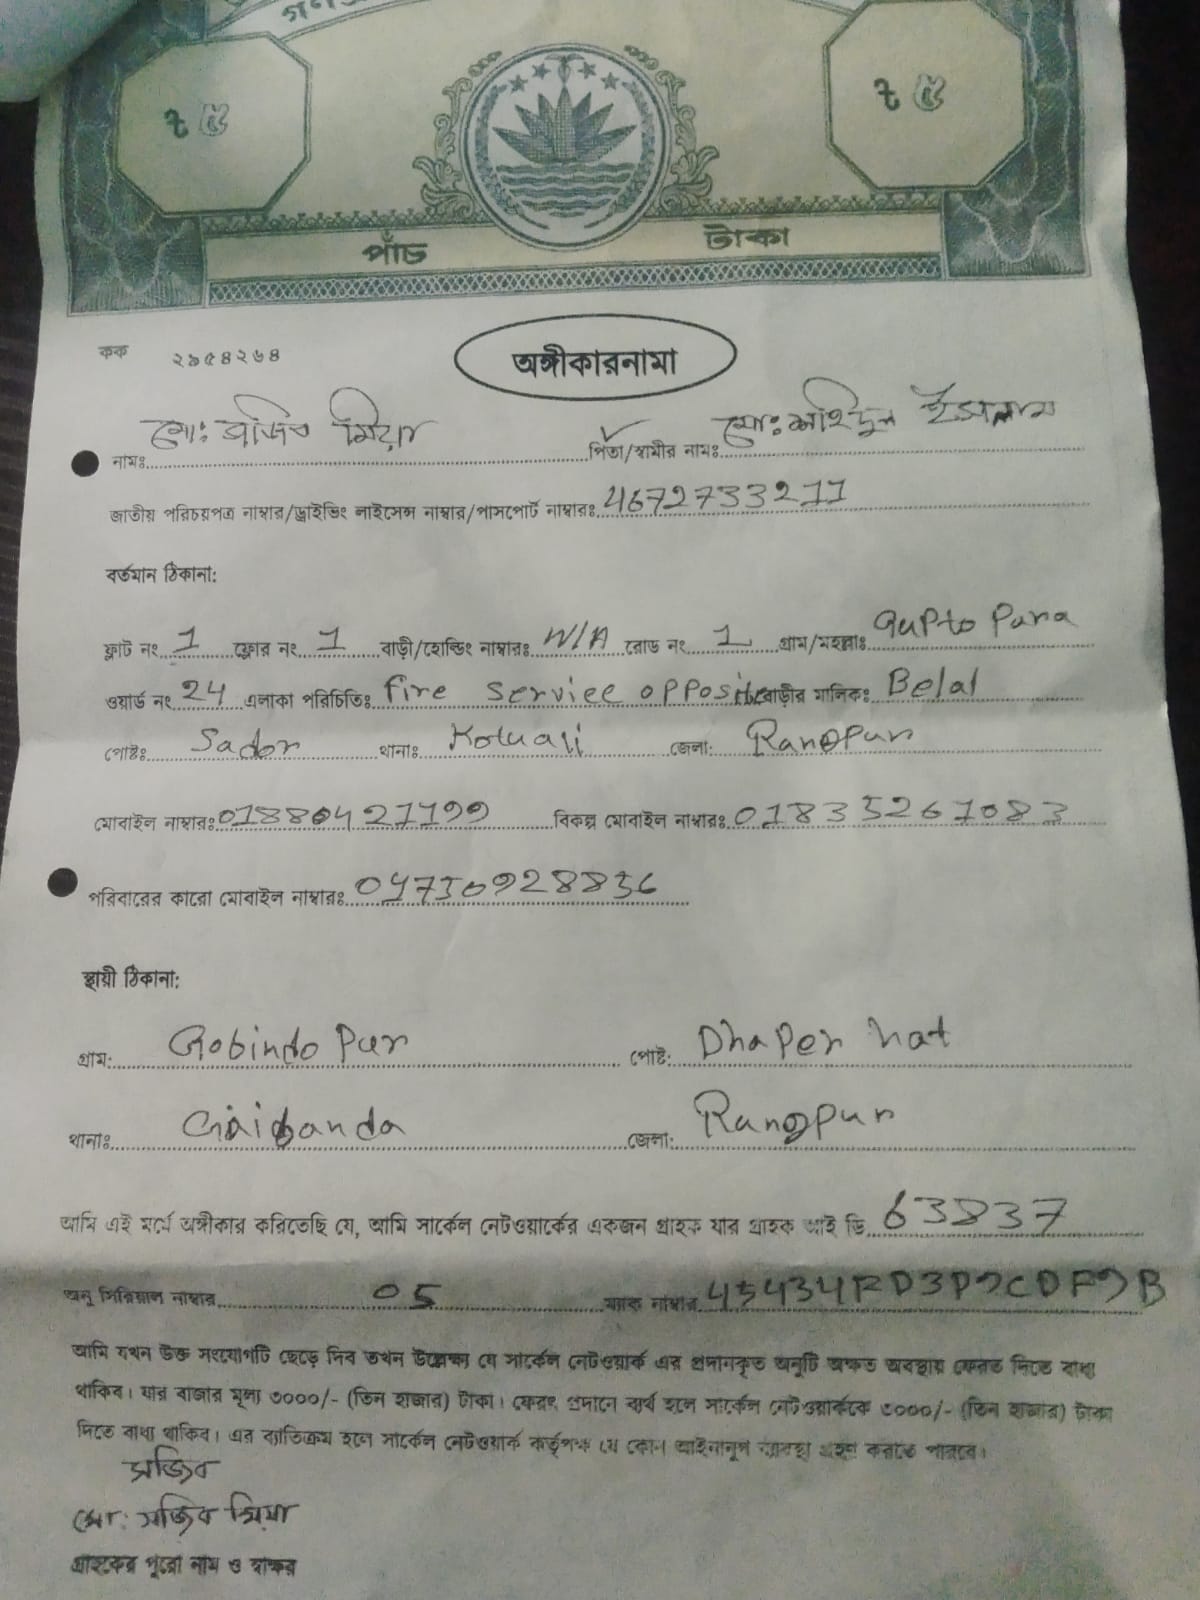 ৳ ৫ ৳ ৫
পাঁচ টাকা
কক ২৯৫৪২৬৪
অঙ্গীকারনামা
নামঃ মোঃ সজিব মিয়া পিতা/স্বামীর নামঃ মোঃ শহিদুল ইসলাম
জাতীয় পরিচয়পত্র নাম্বার/ড্রাইভিং লাইসেন্স নাম্বার/পাসপোর্ট নাম্বারঃ 4672733211
বর্তমান ঠিকানা:
ফ্লাট নং 1 ফ্লোর নং 1 বাড়ী/হোল্ডিং নাম্বারঃ N/A রোড নং 1 গ্রাম/মহল্লাঃ Gupto Para
ওয়ার্ড নং 24 এলাকা পরিচিতিঃ fire service opposite বাড়ীর মালিকঃ Belal
পোষ্টঃ Sador থানাঃ Kotuali জেলা: Rangpur
মোবাইল নাম্বারঃ 01880421199 বিকল্প মোবাইল নাম্বারঃ 01835261083
পরিবারের কারো মোবাইল নাম্বারঃ
স্থায়ী ঠিকানা:
গ্রাম: Gobindo Pur পোষ্ট: Dhaper hat
থানাঃ Gaibanda জেলা: Rangpur
আমি এই মর্মে অঙ্গীকার করিতেছি যে, আমি সার্কেল নেটওয়ার্কের একজন গ্রাহক যার গ্রাহক আই ডি 63837
অনু সিরিয়াল নাম্বার 05 ম্যাক নাম্বার
আমি যখন উক্ত সংযোগটি ছেড়ে দিব তখন উল্লেক্ষ্য যে সার্কেল নেটওয়ার্ক এর প্রদানকৃত অনুটি অক্ষত অবস্থায় ফেরত দিতে বাধ্য
থাকিব। যার বাজার মূল্য ৩০০০/- (তিন হাজার) টাকা। ফেরৎ প্রদানে ব্যর্থ হলে সার্কেল নেটওয়ার্ককে ৩০০০/- (তিন হাজার) টাকা
দিতে বাধ্য থাকিব। এর ব্যতিক্রম হলে সার্কেল নেটওয়ার্ক কর্তৃপক্ষ যে কোন আইনানুগ ব্যবস্থা গ্রহণ করতে পারবে।
সজিব
মো: সজিব মিয়া
গ্রাহকের পুরো নাম ও স্বাক্ষর